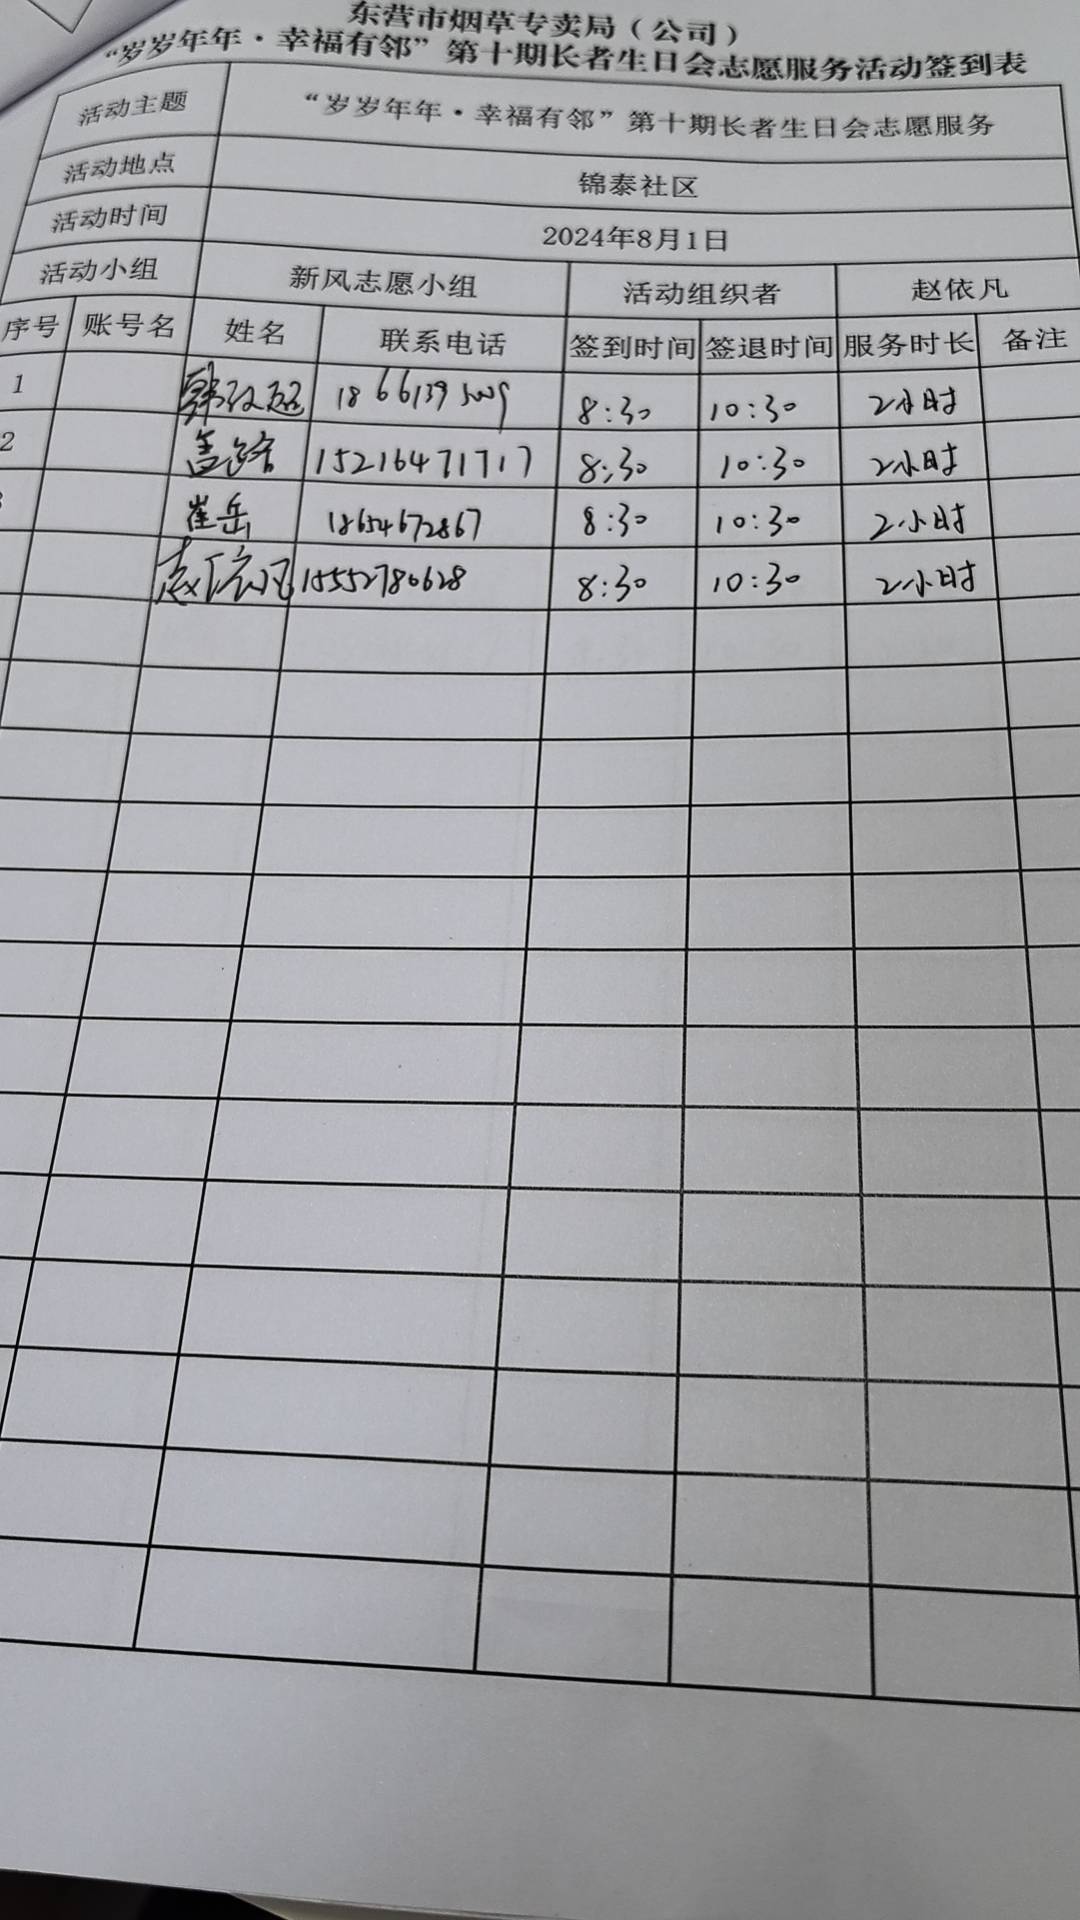 东营市烟草专卖局（公司）
“岁岁年年·幸福有邻”第十期长者生日会志愿服务活动签到表
活动主题 “岁岁年年·幸福有邻”第十期长者生日会志愿服务
活动地点 锦泰社区
活动时间 2024年8月1日
活动小组 新风志愿小组 活动组织者 赵依凡
序号 账号名 姓名 联系电话 签到时间 签退时间 服务时长 备注
1 8:30 10:30 2小时
2 15216471717 8:30 10:30 2小时
崔岳 18654672867 8:30 10:30 2小时
赵依凡 15552780628 8:30 10:30 2小时